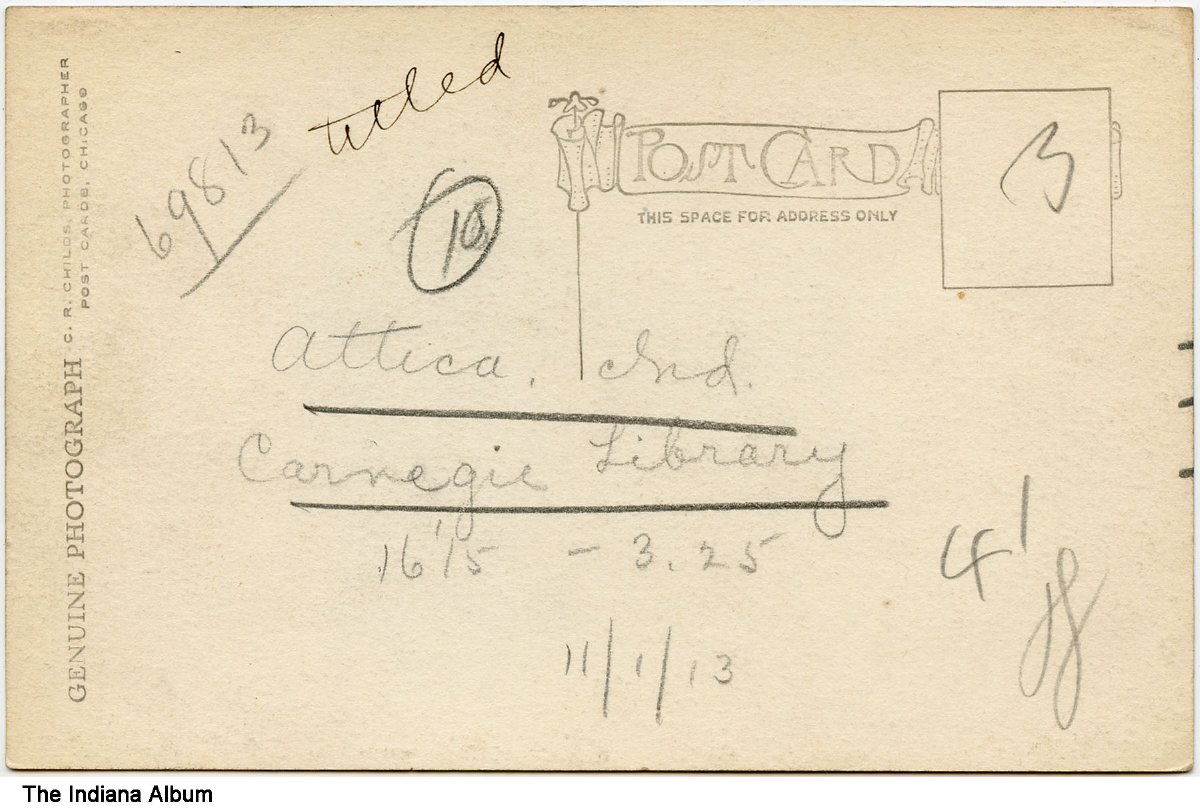 GENUINE PHOTOGRAPH C. R. CHILDS, PHOTOGRAPHER
POST CARDS, CHICAGO
69813
titled
POST CARD
THIS SPACE FOR ADDRESS ONLY
Attica, Ind.
Carnegie Library
16'15 - 3.25
11/1/13
4'
The Indiana Album